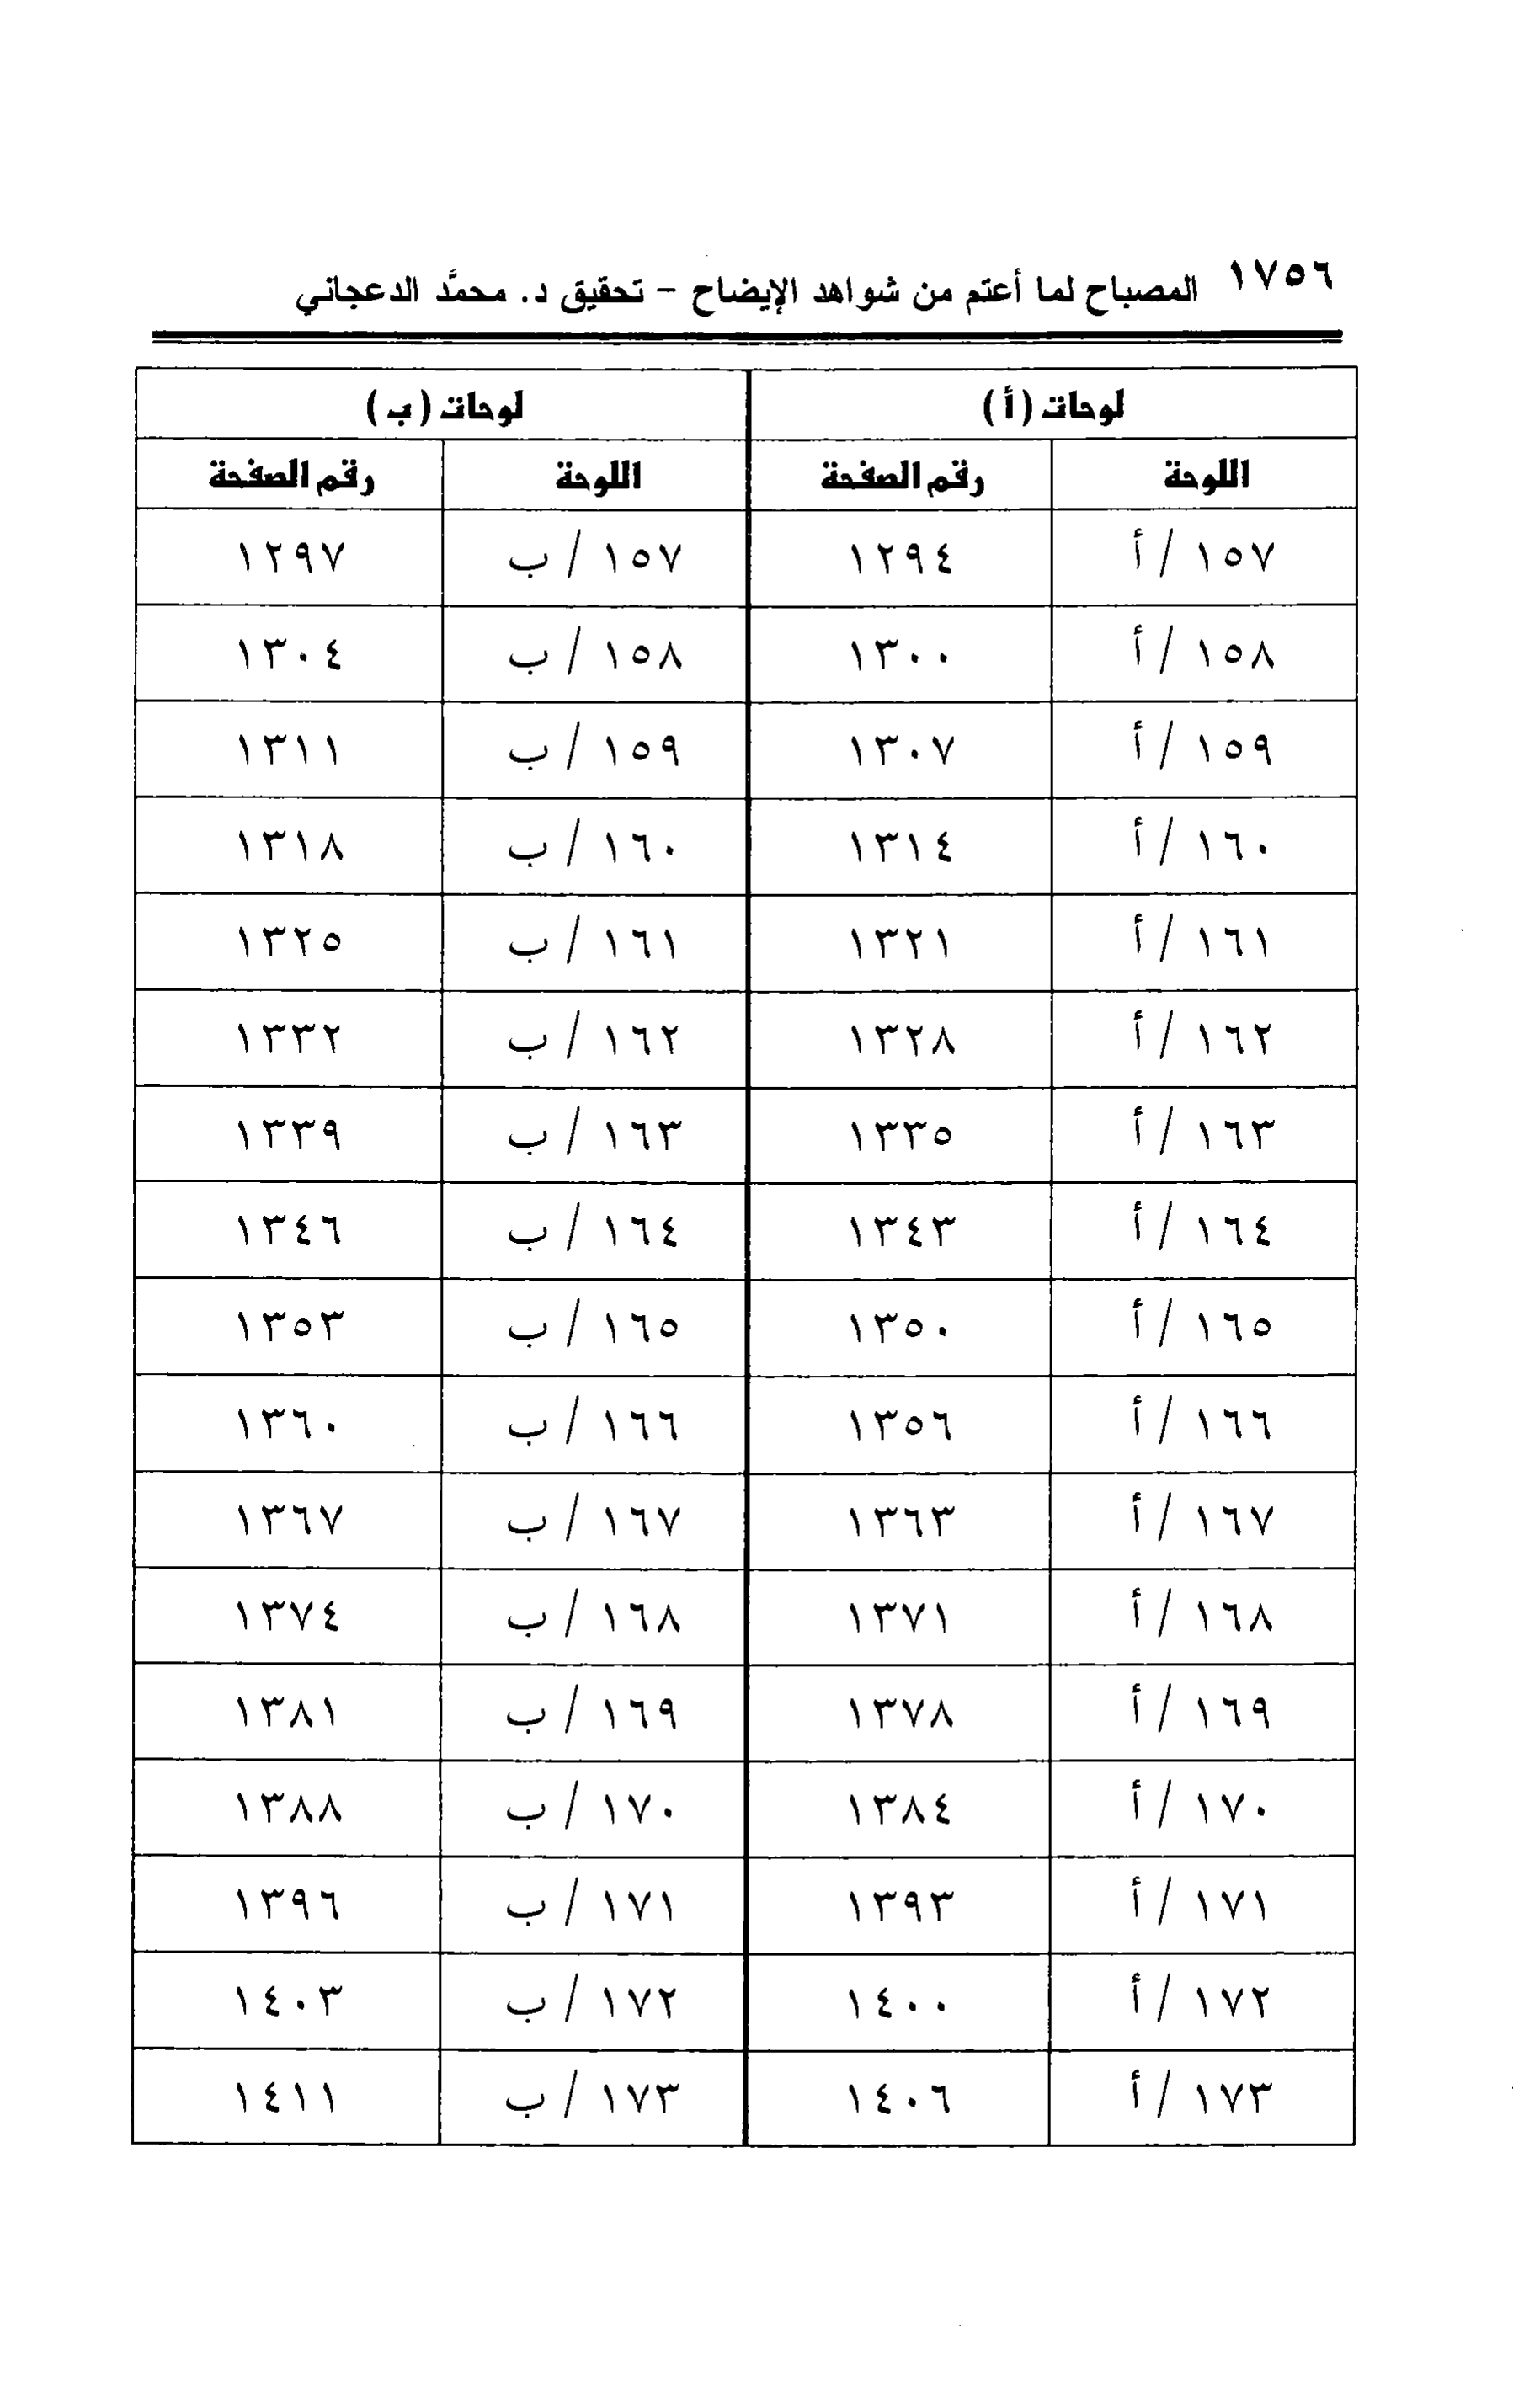 ١٧٥٦ المصباح لما أعتم من شواهد الإيضاح - تحقيق د. محمَّد الدعجاني
لوحات (أ) لوحات (ب)
اللوحة رقم الصفحة اللوحة رقم الصفحة
١٥٧ / أ ١٢٩٤ ١٥٧ / ب ١٢٩٧
١٥٨ / أ ١٣٠٠ ١٥٨ / ب ١٣٠٤
١٥٩ / أ ١٣٠٧ ١٥٩ / ب ١٣١١
١٦٠ / أ ١٣١٤ ١٦٠ / ب ١٣١٨
١٦١ / أ ١٣٢١ ١٦١ / ب ١٣٢٥
١٦٢ / أ ١٣٢٨ ١٦٢ / ب ١٣٣٢
١٦٣ / أ ١٣٣٥ ١٦٣ / ب ١٣٣٩
١٦٤ / أ ١٣٤٣ ١٦٤ / ب ١٣٤٦
١٦٥ / أ ١٣٥٠ ١٦٥ / ب ١٣٥٣
١٦٦ / أ ١٣٥٦ ١٦٦ / ب ١٣٦٠
١٦٧ / أ ١٣٦٣ ١٦٧ / ب ١٣٦٧
١٦٨ / أ ١٣٧١ ١٦٨ / ب ١٣٧٤
١٦٩ / أ ١٣٧٨ ١٦٩ / ب ١٣٨١
١٧٠ / أ ١٣٨٤ ١٧٠ / ب ١٣٨٨
١٧١ / أ ١٣٩٣ ١٧١ / ب ١٣٩٦
١٧٢ / أ ١٤٠٠ ١٧٢ / ب ١٤٠٣
١٧٣ / أ ١٤٠٦ ١٧٣ / ب ١٤١١